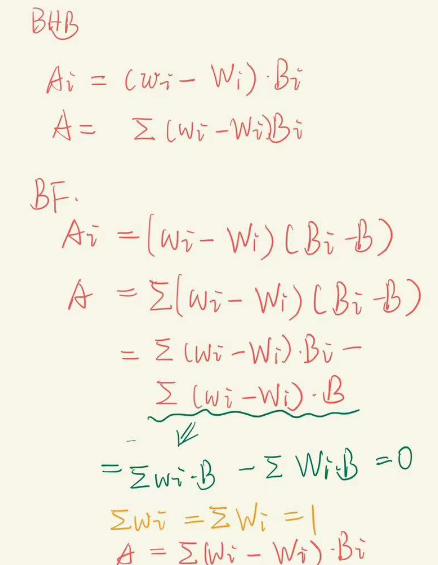 BHB
Ai = (wi - Wi)·Bi
A = Σ(wi - Wi)Bi
BF.
Ai = (wi - Wi)(Bi - B)
A = Σ(wi - Wi)(Bi - B)
= Σ(wi - Wi)·Bi -
Σ(wi - Wi)·B
= Σwi·B - ΣWi·B = 0
Σwi = ΣWi = 1
A = Σ(wi - Wi)·Bi